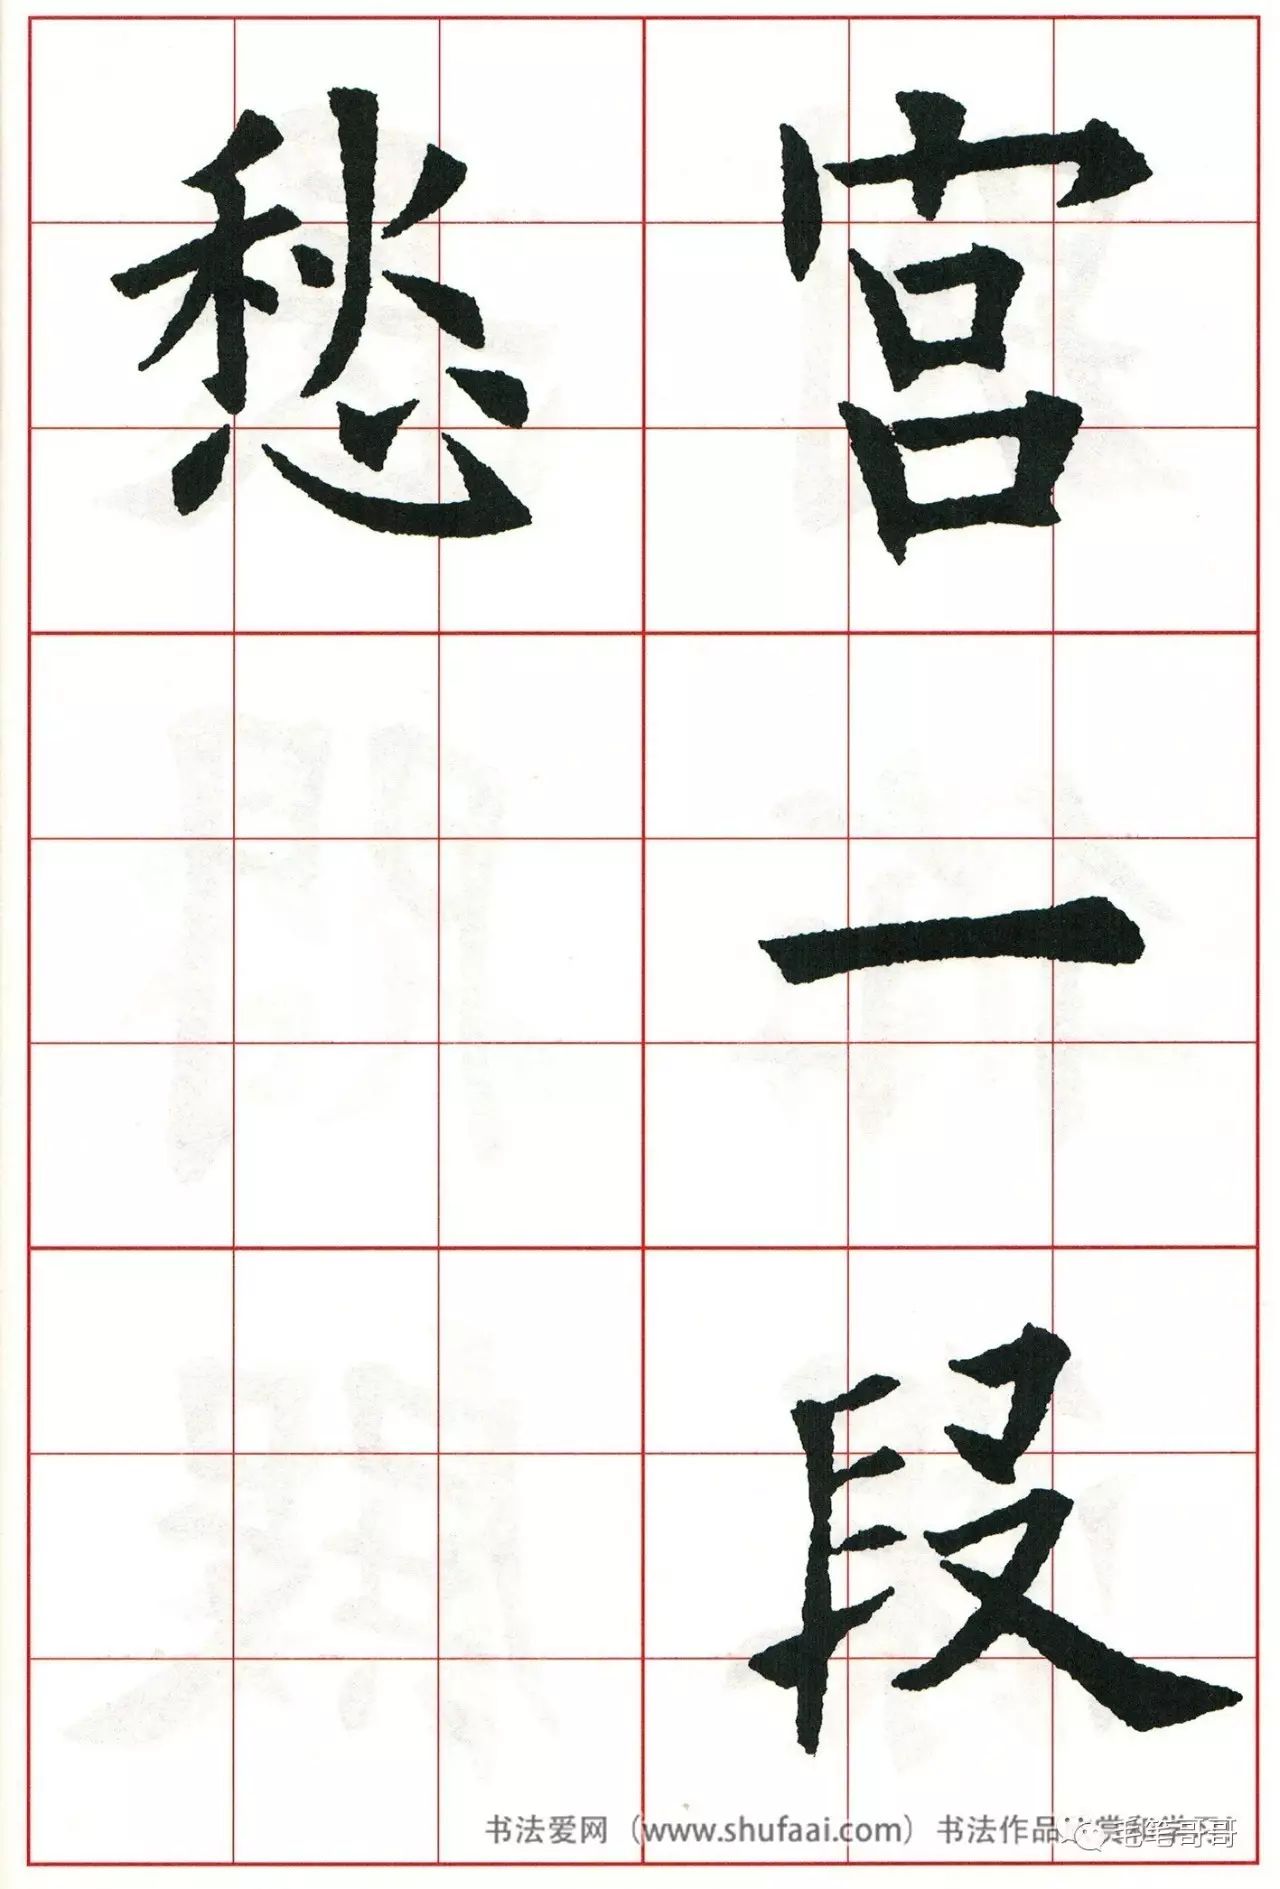 宫一段
愁
书法爱网（www.shufaai.com）书法作品欣赏和学习
毛笔哥哥